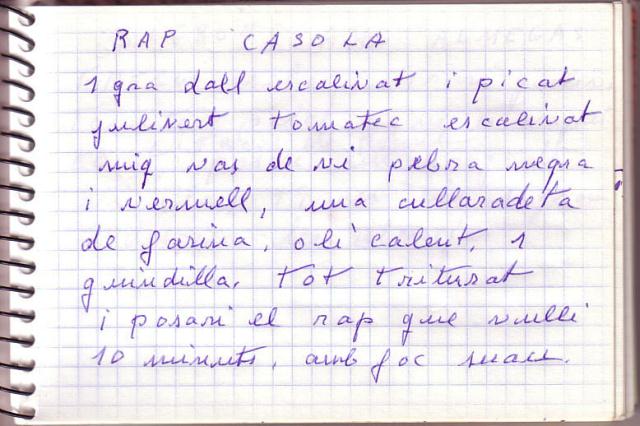 RAP CASOLA
1 gra dall escalivat i picat
julivert tomatec escalivat
mig vas de vi pebra negra
i vermell, una cullaradeta
de farina, oli calent, 1
guindilla. Tot triturat
i posari el rap que vulli
10 minuts, amb foc suau.